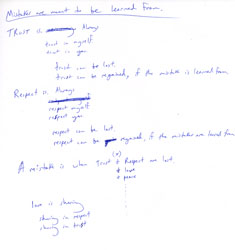 Mistakes are meant to be learned from.
TRUST is Always
trust in myself
trust in you
trust can be lost.
trust can be regained, if the mistake is learned from
Respect is Always
respect myself
respect you
respect can be lost.
respect can be regained, if the mistakes are learned from
A mistake is when Trust + Respect are lost.
+ love
+ peace
love is sharing
sharing in respect
sharing in trust